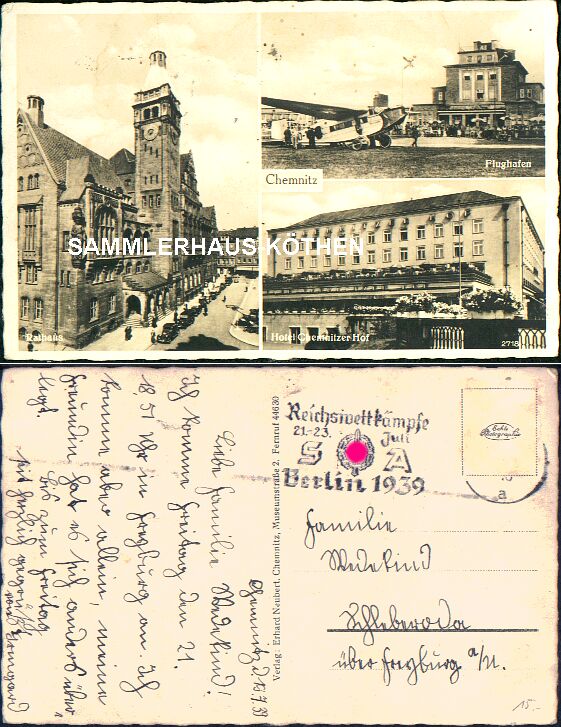 Chemnitz
Flughafen
SAMMLERHAUS KÖTHEN
Rathaus
Hotel Chemnitzer Hof
2718
Chemnitz d. 19.7.39
Liebe Familie Wedekind!
Ich komme Freitag den 21.
18,51 Uhr in Freyburg an. Ich
komme aber allein, meine
Freundin hat es sich anders über"
legt.
Bis zum Freitag
seid herzlich
von
Verlag: Erhard Neubert, Chemnitz, Museumstraße 2. Fernruf 44630
Reichswettkämpfe
21.-23. Juli
S A
Berlin 1939
a
Echte
Photographie
Familie
Wedekind
Schleberoda
über Freyburg a/U.
15.-